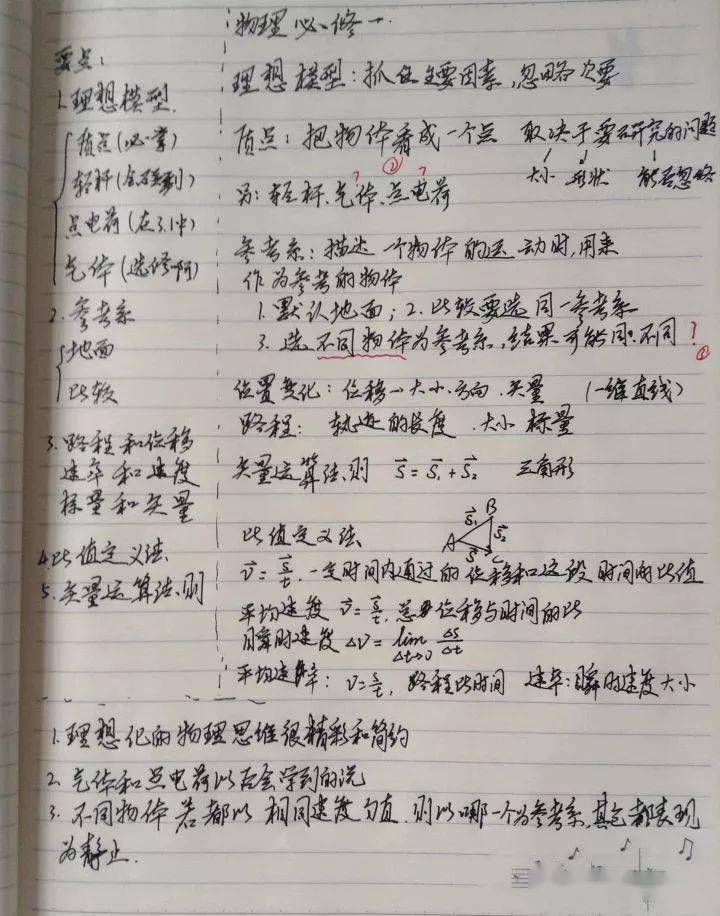 物理必修一
要点：
1.理想模型
质点(必掌)
轻杆(会碰到)
点电荷(在3.1中)
气体(选修啊)
2.参考系
地面
比较
3.路程和位移
速率和速度
标量和矢量
4.比值定义法
5.矢量运算法则
理想模型：抓住主要因素，忽略次要
质点：把物体看成一个点 取决于要研究的问题
大小 形状 能否忽略
另：轻杆、气体、点电荷
? ② ?
参考系：描述一个物体的运动时，用来
作为参考的物体
1.默认地面；2.比较要选同一参考系
3.选不同物体为参考系，结果可能同、不同?
③
位置变化：位移→大小、方向.矢量 (一维直线)
路程：轨迹的长度.大小 标量
矢量运算法则 S⃗=S⃗₁+S⃗₂ 三角形
A B C S⃗₁ S⃗₂ S⃗
比值定义法
v⃗=s⃗/t.一定时间内通过的位移和这段时间的比值
平均速度 v⃗=s⃗/t，总位移与时间的比
瞬时速度 ΔV=lim Δt→0 Δs/Δt
平均速率：V=s/t，路程比时间 速率：瞬时速度大小
1.理想化的物理思维很精彩和简约
2.气体和点电荷以后会学到的说
3.不同物体若都以相同速度匀直.则以哪一个为参考系，其它都表现
为静止.